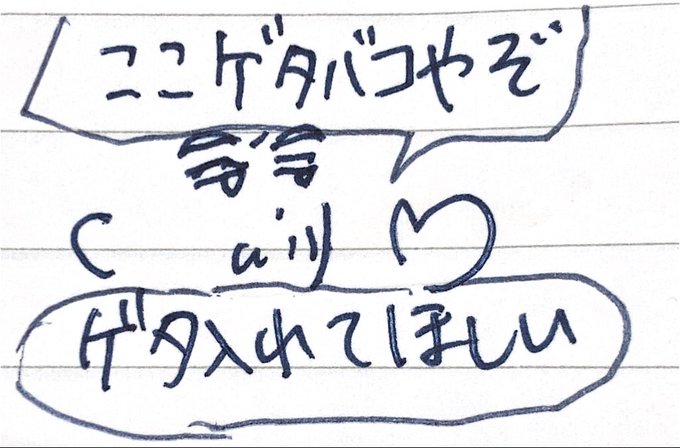 ここゲタバコやぞ
ゲタ入れてほしい